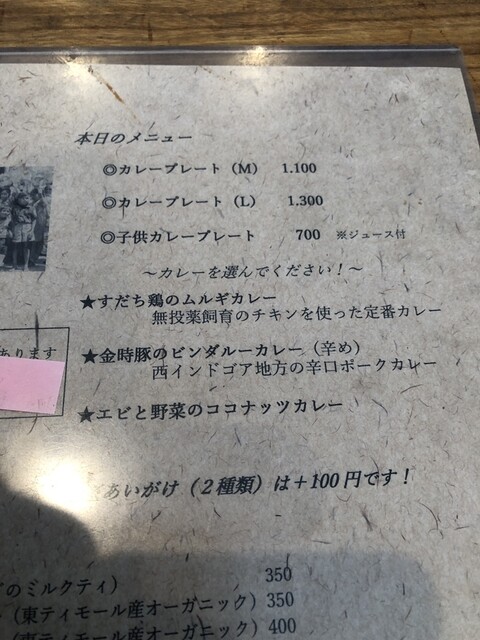 本日のメニュー
◎カレープレート（M） 1.100
◎カレープレート（L） 1.300
◎子供カレープレート 700 ※ジュース付
～カレーを選んでください！～
★すだち鶏のムルギカレー
無投薬飼育のチキンを使った定番カレー
あります
★金時豚のビンダルーカレー（辛め）
西インドゴア地方の辛口ポークカレー
★エビと野菜のココナッツカレー
あいがけ（２種類）は＋100円です！
のミルクティ） 350
（東ティモール産オーガニック）350
（東ティモール産オーガニック） 400